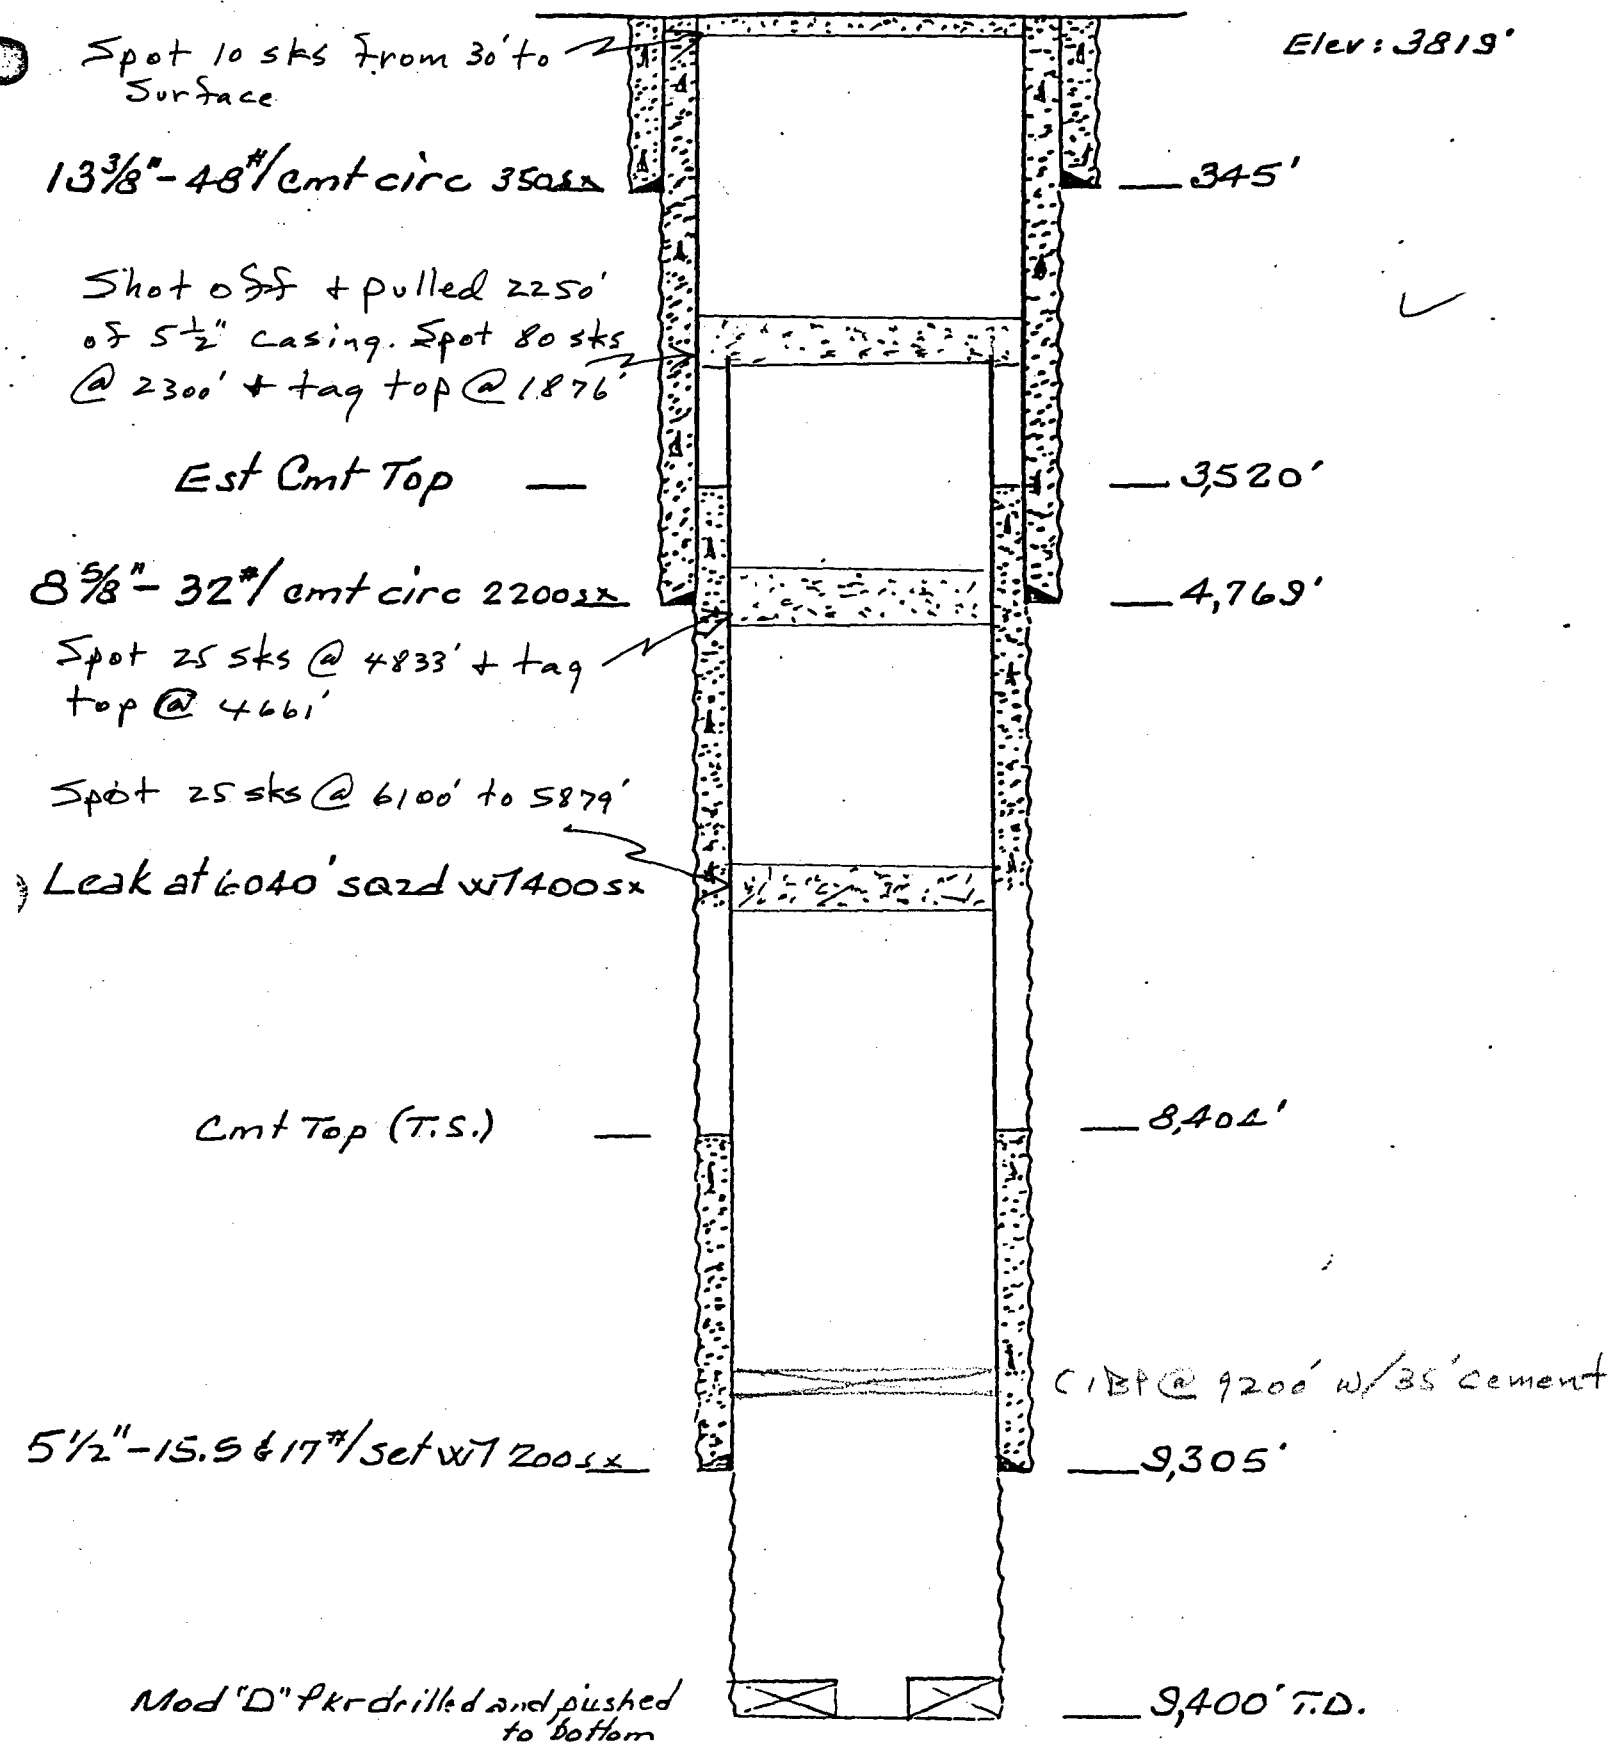 Spot 10 sks from 30' to
Surface
Elev: 3819'
13 3/8" - 48#/ cmt circ 350sx
345'
Shot off + pulled 2250'
of 5 1/2" casing. Spot 80 sks
@ 2300' + tag top @ 1876'
Est Cmt Top
3,520'
8 5/8" - 32#/ cmt circ 2200sx
4,769'
Spot 25 sks @ 4833' + tag
top @ 4661'
Spot 25 sks @ 6100' to 5879'
Leak at 6040' sqzd w/1400sx
Cmt Top (T.S.)
8,404'
CIBP @ 9200' w/35' cement
5 1/2" - 15.5 & 17#/ set w/1200sx
9,305'
Mod "D" Pkr drilled and pushed
to bottom
9,400' T.D.